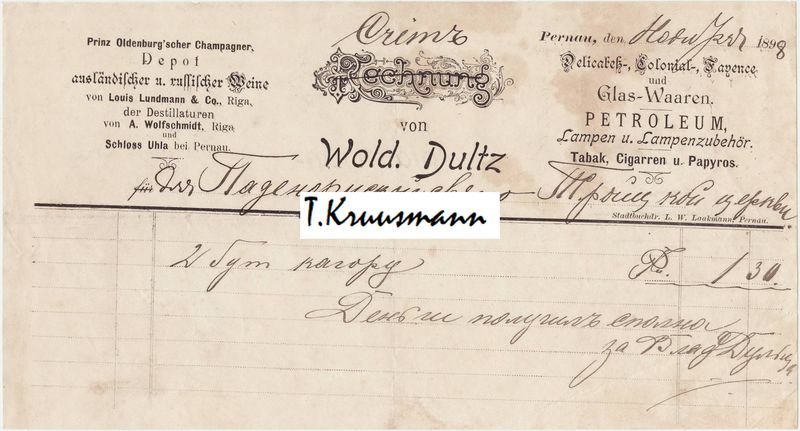 Счетъ
Prinz Oldenburg'scher Champagner,
Depot
ausländischer u. russischer Weine
von Louis Lundmann & Co., Riga,
der Destillaturen
von A. Wolfschmidt, Riga
und
Schloss Uhla bei Pernau.
Rechnung
von
Wold. Dultz
Pernau, den Ноября 1898
Delicateß-, Colonial-, Fayence
und
Glas-Waaren,
PETROLEUM,
Lampen u. Lampenzubehör.
Tabak, Cigarren u. Papyros.
für Для церкви
T.Kruusmann
Stadtbuchdr. L. W. Laakmann, Pernau.
2 бут кагору R. 1 30
Деньги получилъ сполна
за Влад Дульца